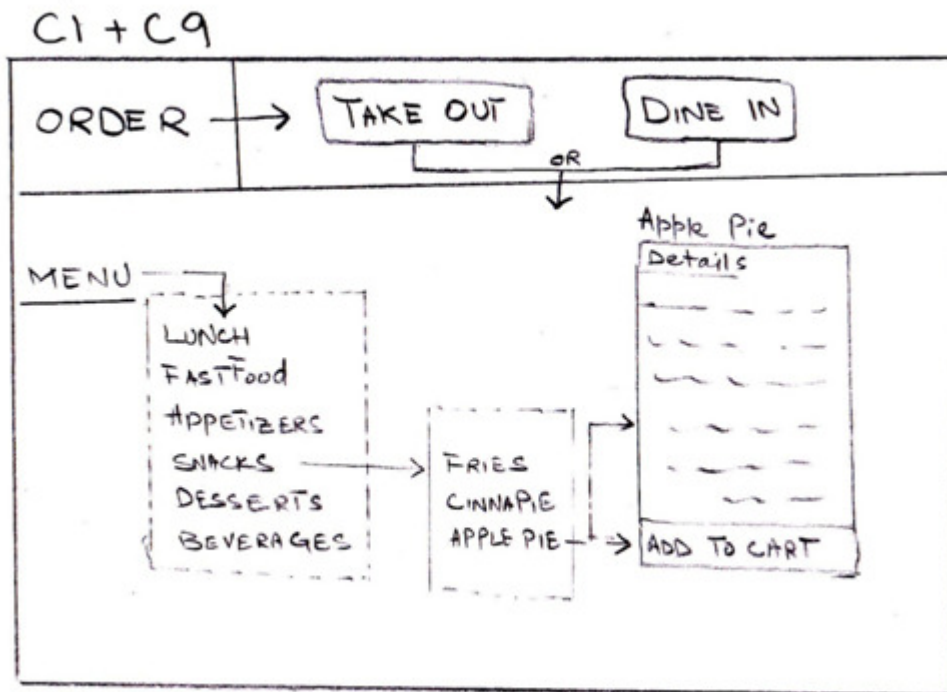 C1 + C9
ORDER
TAKE OUT
DINE IN
OR
MENU
LUNCH
FASTFood
APPETIZERS
SNACKS
DESSERTS
BEVERAGES
FRIES
CINNAPIE
APPLE PIE
Apple Pie
Details
ADD TO CART